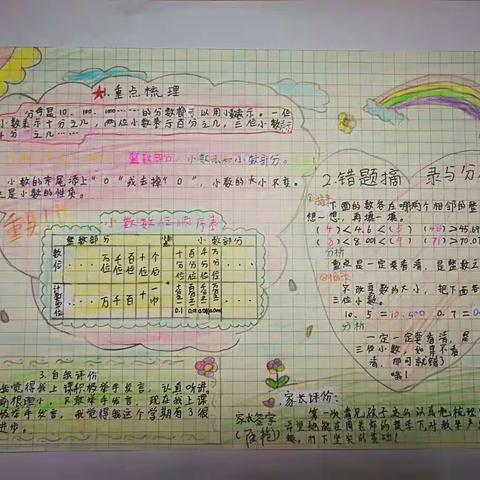 1.重点梳理
分母是10、100、1000……的分数都可以用小数表示。一位
小数表示十分之几,两位小数表示百分之几,三位小数表示
千分之几……
整数部分、小数点和小数部分。
小数的末尾添上“0”或去掉“0”,小数的大小不变。
是小数的性质。
小数数位顺序表
整数部分 小数部分
数位 … 万位 千位 百位 十位 个位 十分位 百分位 千分位 …
计数单位 … 万 千 百 十 一 0.1 0.01 0.001 …
2.错题摘录与分析
下面的数各在哪两个相邻的整
想一想,再填一填。
(4)<4.6<(5) (46)>45.69
(8)<8.001<(9) (71)>70.07
分析
重点是一定要看清,是整数
不改变数的大小,把下面
三位小数。
10.5=10.500 0.7=
分析
一定一定要看清,是
三位小数,如果不看
清,即可就错
哦!
3.自我评价
我觉得我上课积极举手发言,认真听讲,
前很胆小,不敢举手发言,现在我上课
极举手发言,我觉得我这个学期有了很
进步。
家长签字
家长评价:
第一次看见孩子这么认真地梳理
希望她能在周老师的带领下对数学产
趣,打下坚实的基础!